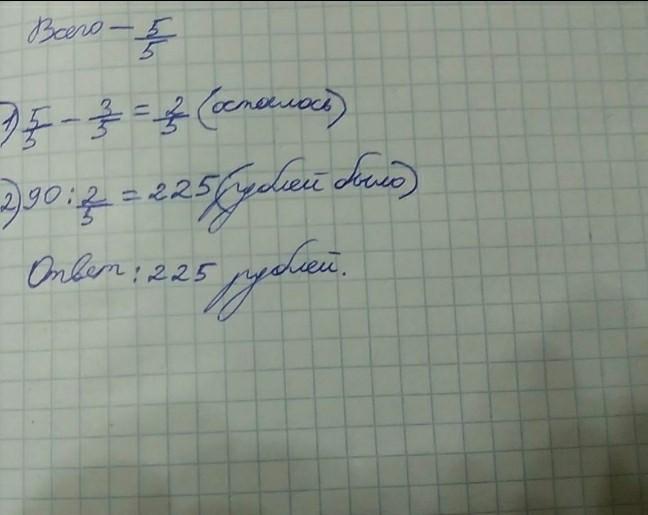 Всего — 5/5
1) 5/5 - 3/5 = 2/5 (осталось)
2) 90 : 2/5 = 225 (рублей было)
Ответ: 225 рублей.